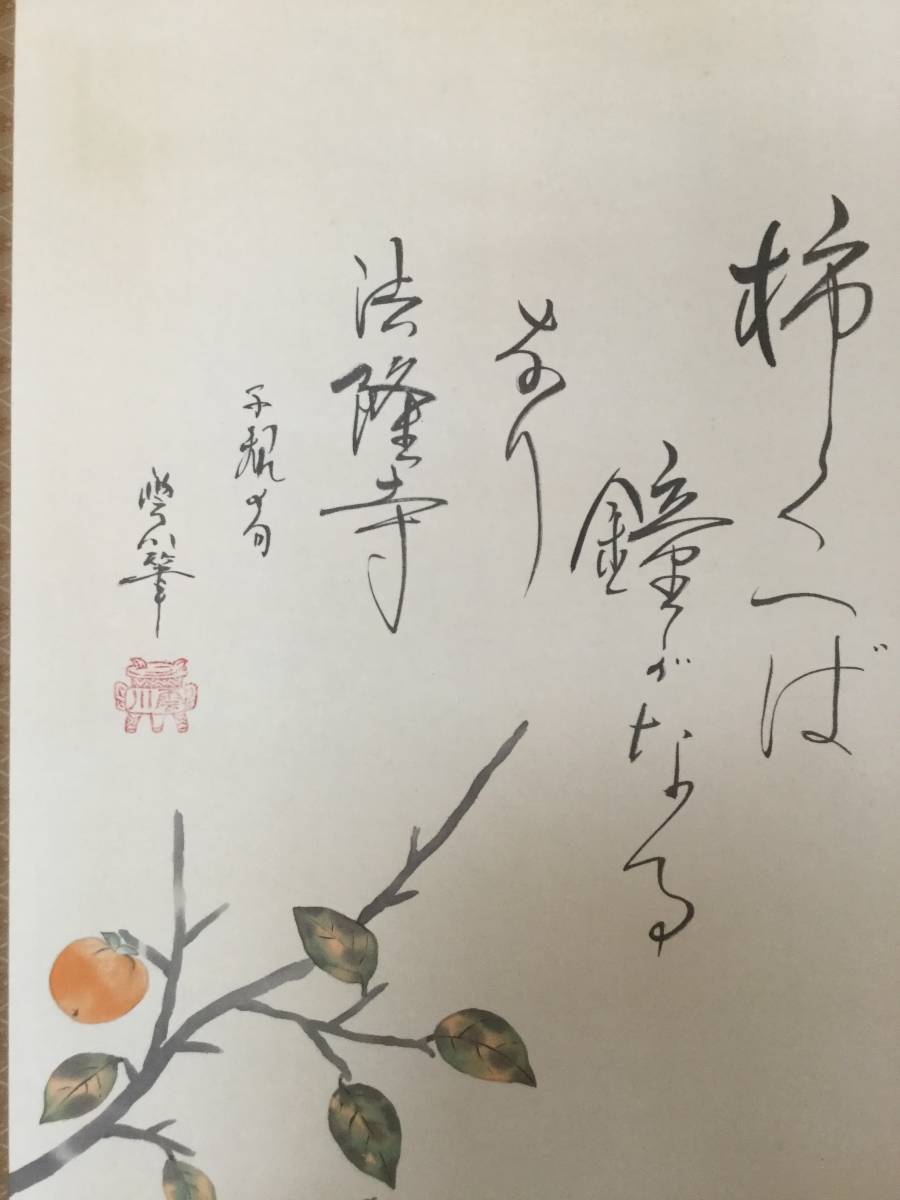 柿くへば
鐘がなる
なり
法隆寺
子規の句
川筆